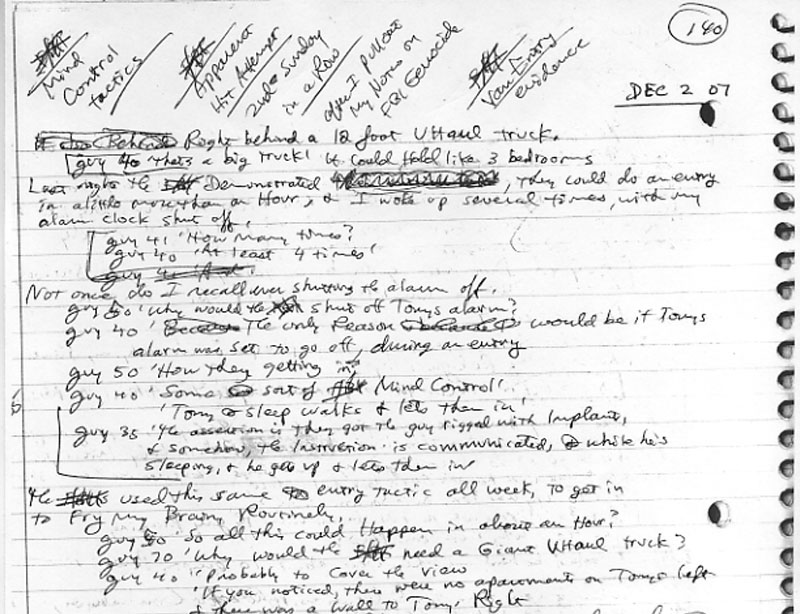 140
Mind
Control
tactics
Apparent
Hit Attempt
2nd Sunday
in a Row
after I put out
my Notes on
FBI Genocide
Van Entry
evidence
DEC 2 07
Right behind a 12 foot UHaul truck.
guy 40 'Thats a big truck! It could Hold like 3 bedrooms
Last night the Demonstrated, they could do an entry
in a little more than an Hour, & I woke up several times, with my
alarm clock shut off.
guy 41 'How many times?
guy 40 'At least 4 times'
Not once do I recall ever shutting the alarm off.
guy 50 'Why would the shut off Tonys alarm?
guy 40 'The only Reason would be if Tonys
alarm was set to go off, during an entry
guy 50 'How they getting in'
guy 40 'Some sort of Mind Control'
'Tony sleep walks & lets them in'
guy 35 'The assertion is they got the guy rigged with Implants,
& somehow, the Instruction is communicated, while he's
sleeping, & he gets up & lets them in
The used this same entry tactic all week, to get in
to Fry my Brain, Routinely.
guy 50 'So all this could Happen in above an Hour?
guy 70 'Why would the need a Giant UHaul truck?
guy 40 'probably to Cover the view
'If you noticed, there were no apartments on Tonys left
& there was a wall to Tonys Right